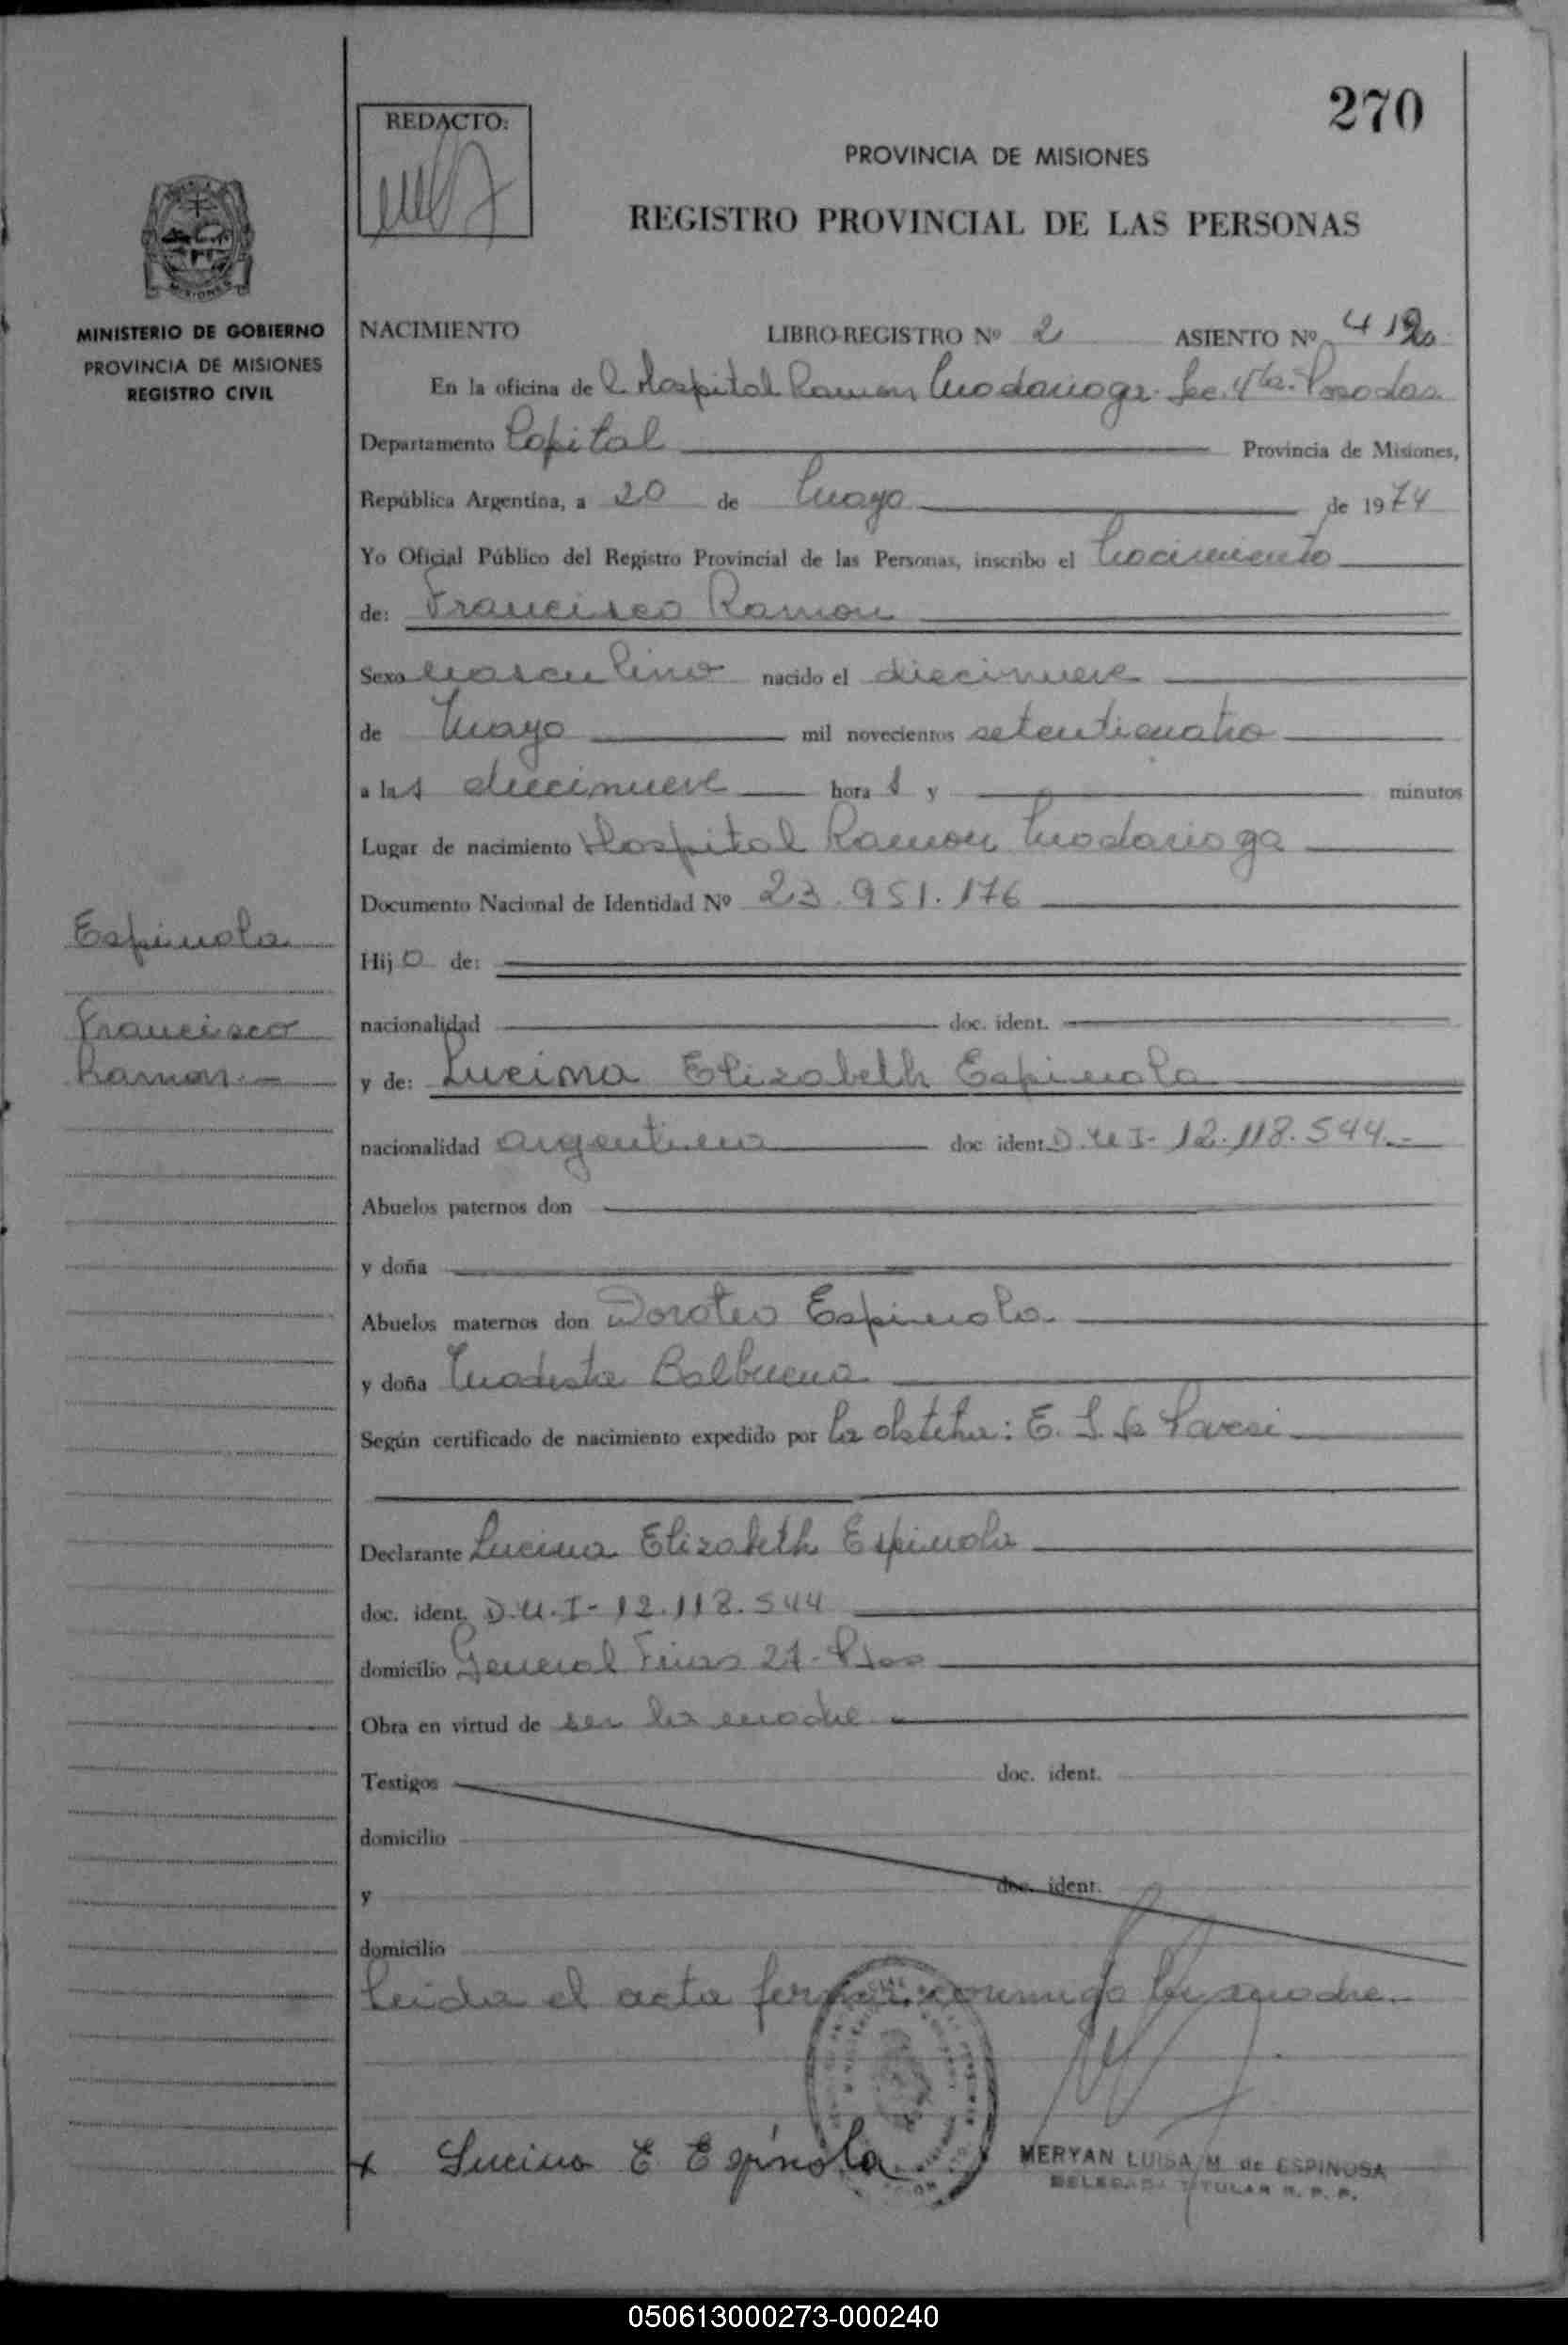 270
REDACTO:
PROVINCIA DE MISIONES
REGISTRO PROVINCIAL DE LAS PERSONAS
MISIONES
MINISTERIO DE GOBIERNO
PROVINCIA DE MISIONES
REGISTRO CIVIL
NACIMIENTO LIBRO-REGISTRO Nº 2 ASIENTO Nº
En la oficina de l Hospital Ramon Madariaga. Sec. 4ta. Posadas
Departamento Capital Provincia de Misiones,
República Argentina, a 20 de Mayo de 1974
Yo Oficial Público del Registro Provincial de las Personas, inscribo el Nacimiento
de: Francisco Ramon
Sexo masculino nacido el diecinueve
de Mayo mil novecientos setenticuatro
a las diecinueve hora s y minutos
Lugar de nacimiento Hospital Ramon Madariaga
Documento Nacional de Identidad Nº 23.951.176
Espinola
Hij o de:
Francisco
nacionalidad doc. ident.
Ramon.-
y de: Lucina Elizabeth Espinola
nacionalidad argentina doc ident. D.U.I- 12.118.544.-
Abuelos paternos don
y doña
Abuelos maternos don Doroteo Espinola
y doña Modesta Balbuena
Según certificado de nacimiento expedido por la obstetra: E. S. de Pavesi
Declarante Lucina Elizabeth Espinola
doc. ident. D.U.I- 12.118.544
domicilio General Frias 27- Pdas
Obra en virtud de ser la madre
Testigos doc. ident.
domicilio
y doc. ident.
domicilio
Leida el acta firma conmigo la madre.-
x Lucina E Espínola
MERYAN LUISA M de ESPINOSA
DELEGADA TITULAR R. P. P.
050613000273-000240